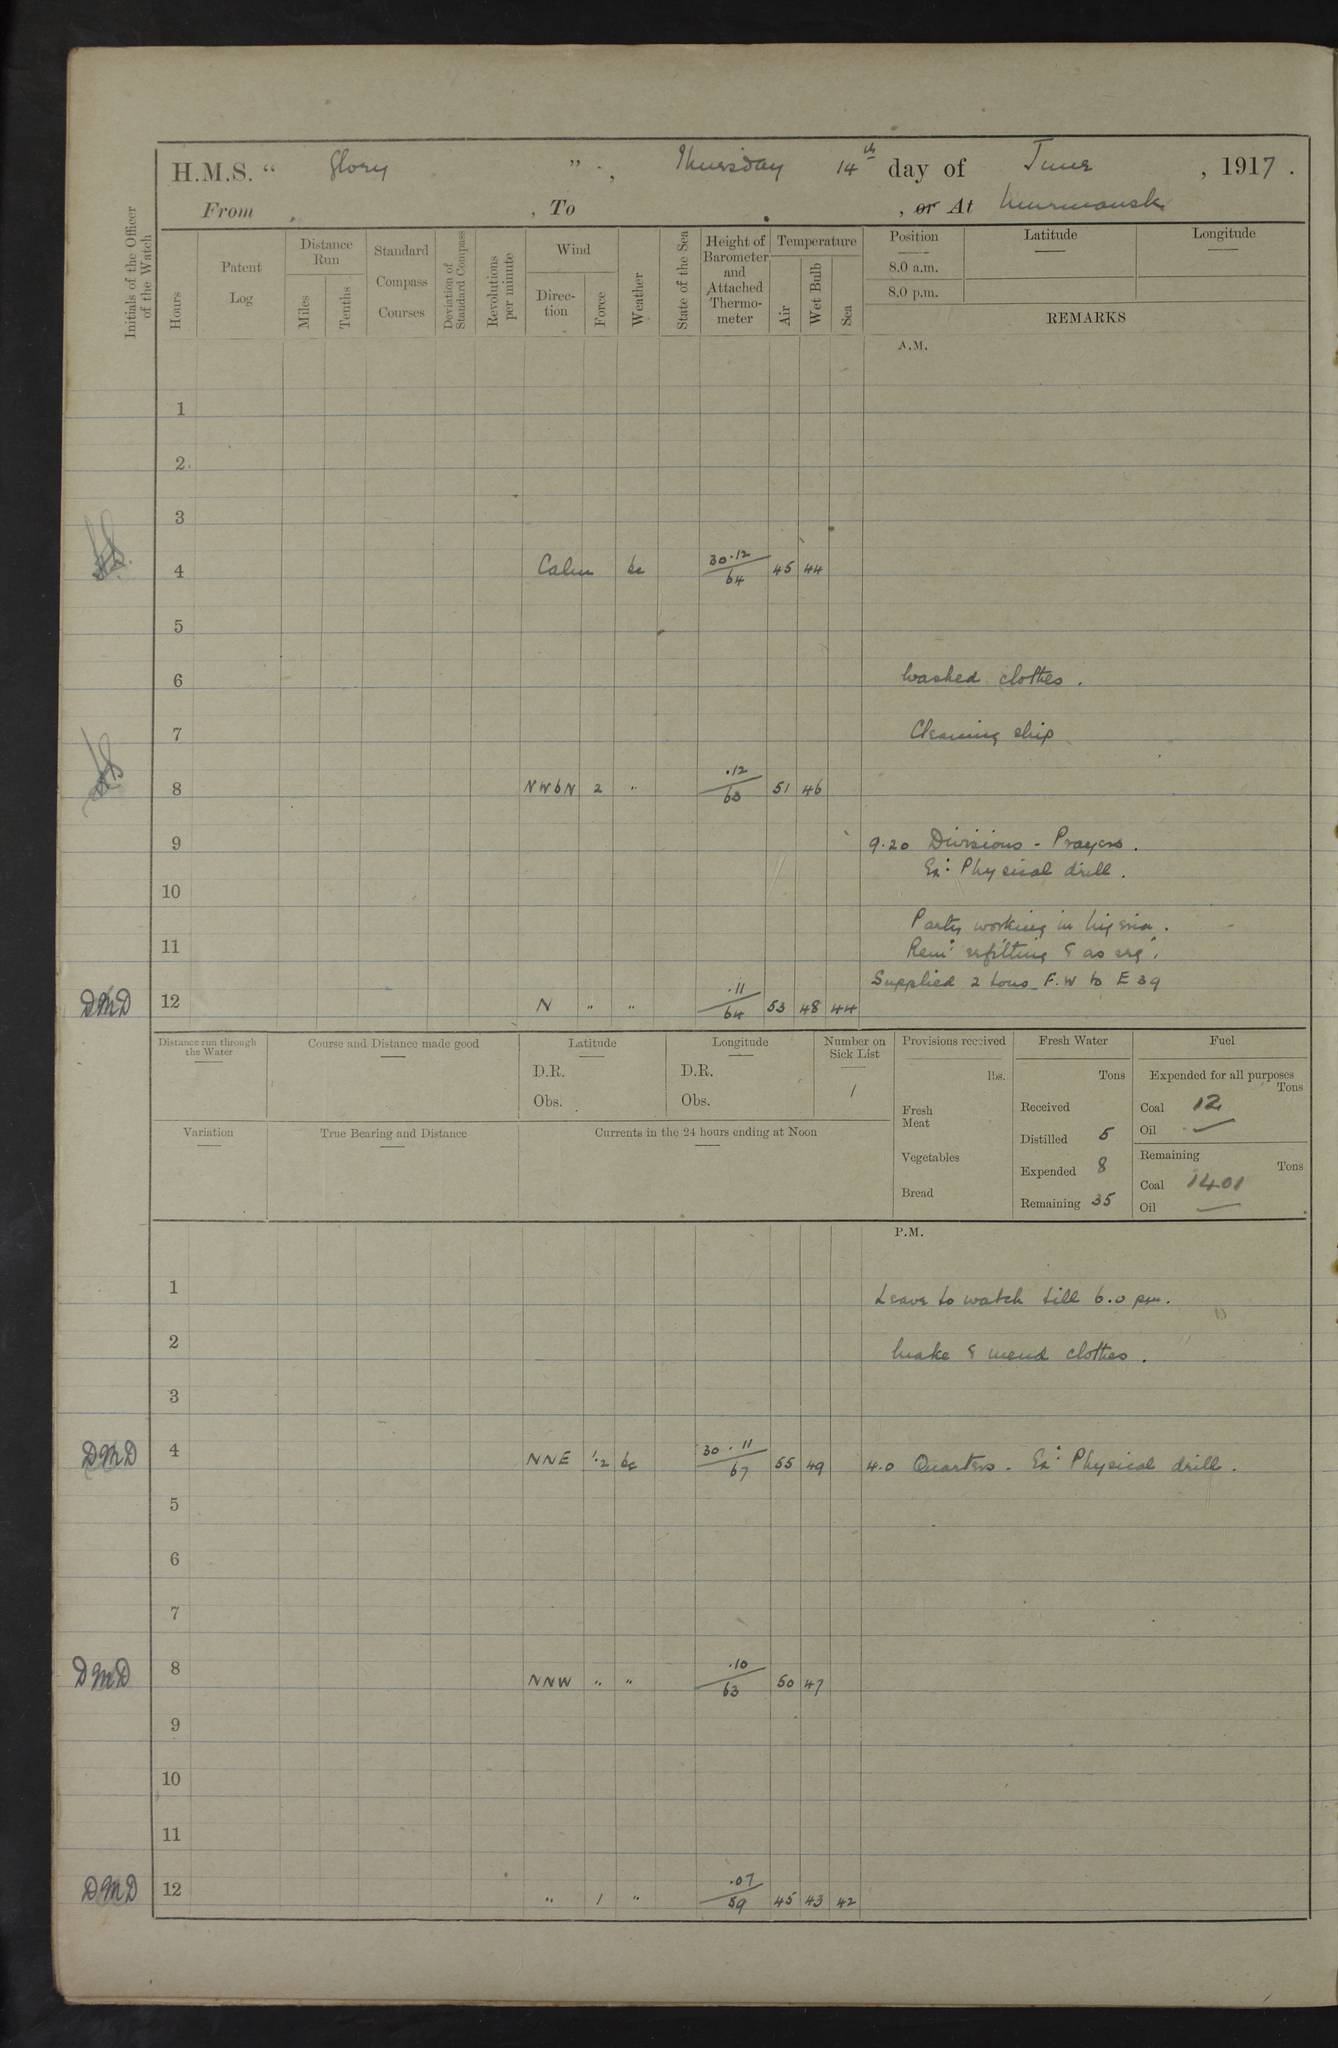 H.M.S. “ Glory ”, Thursday 14th day of June, 1917.
From , To , or At Murmansk
Initials of the Officer of the Watch
Hours
Patent Log
Distance Run
Miles
Tenths
Standard Compass Courses
Deviation of Standard Compass
Revolutions per minute
Wind
Direction
Force
Weather
State of the Sea
Height of Barometer and Attached Thermometer
Temperature
Air
Wet Bulb
Sea
Position
Latitude
Longitude
8.0 a.m.
8.0 p.m.
REMARKS
A.M.
1
2
3
4 Calm bc 30.12/64 45 44
5
6 Washed clothes.
7 Cleaning ship
8 NWbN 2 " .12/63 51 46
9 9.20 Divisions - Prayers.
Ex: Physical drill.
10
Party working in Nigeria.
11 Rem: refitting & as req:
Supplied 2 tons F.W to E 39
DMD 12 N " " .11/64 53 48 44
Distance run through the Water
Course and Distance made good
Latitude
D.R.
Obs.
Longitude
D.R.
Obs.
Number on Sick List
1
Provisions received
lbs.
Fresh Meat
Vegetables
Bread
Fresh Water
Tons
Received
Distilled 5
Expended 8
Remaining 35
Fuel
Expended for all purposes
Tons
Coal 12
Oil —
Remaining
Tons
Coal 1401
Oil —
Variation
True Bearing and Distance
Currents in the 24 hours ending at Noon
P.M.
1 Leave to watch till 6.0 pm.
2 Make & mend clothes.
3
DMD 4 NNE 1.2 bc 30.11/67 55 49 4.0 Quarters. Ex: Physical drill.
5
6
7
DMD 8 NNW " " .10/63 50 47
9
10
11
DMD 12 " 1 " .07/59 45 43 42